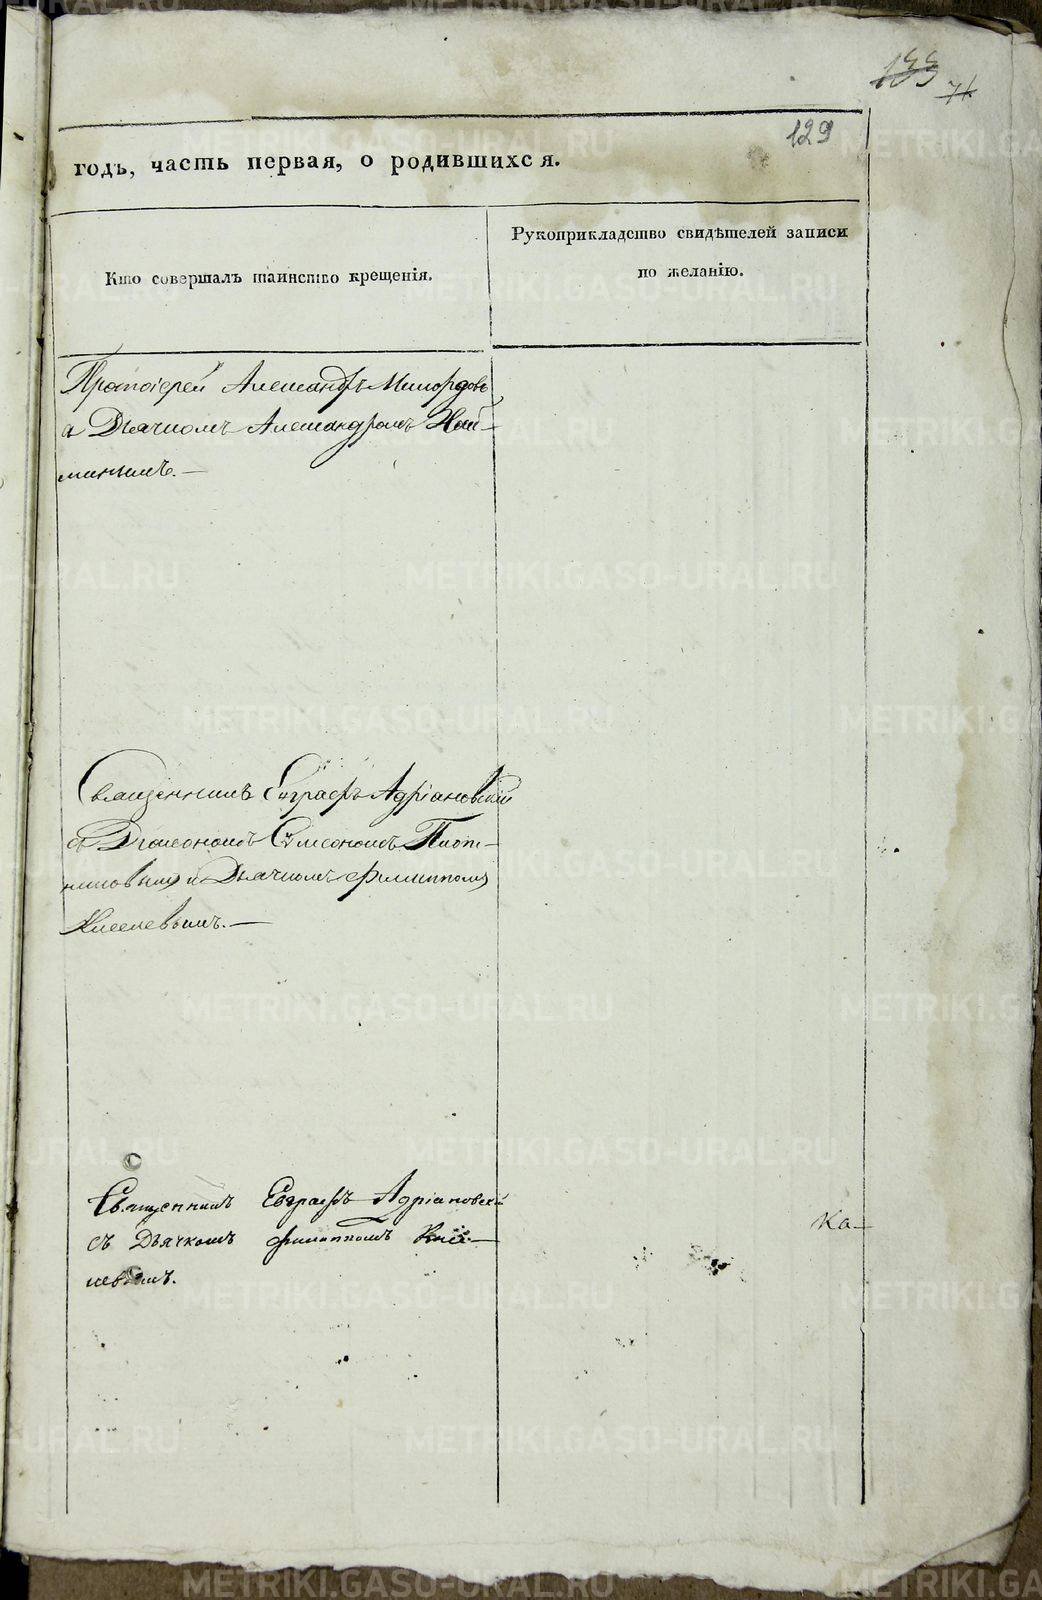 133 71
129
годъ, часть первая, о родившихся.
Кто совершалъ таинство крещенія.
Рукоприкладство свидѣтелей записи
по желанію.
Протоіерей Александръ Милордовъ
с Дьячкомъ Александромъ Най-
минымъ. —
Священникъ Евграфъ Адріановскій
съ Діакономъ Симеономъ Плот-
никовымъ и Дьячкомъ Филиппомъ
Киселевымъ. —
Священникъ Евграфъ Адріановскій
съ Дьячкомъ Филиппомъ Кисе-
левымъ.
Ка-
METRIKI.GASO-URAL.RU